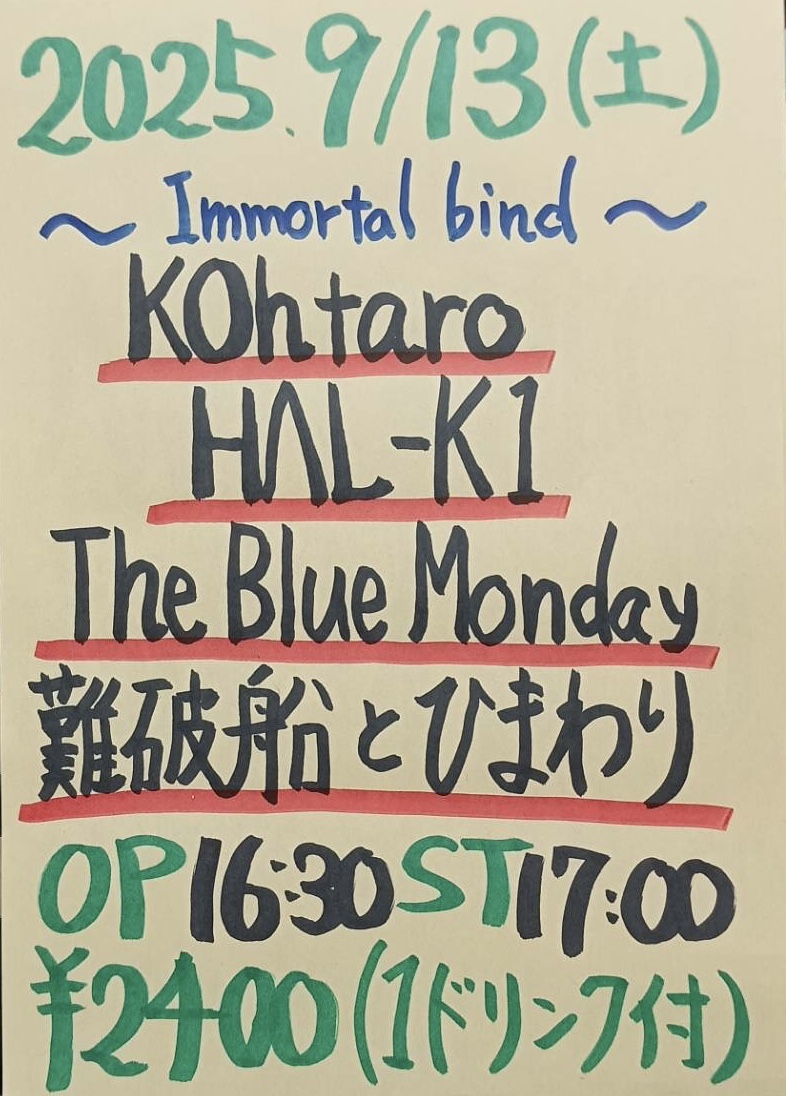 2025.9/13(土)
～Immortal bind～
KOhtaro
HΛL-K1
The Blue Monday
難破船とひまわり
OP16:30 ST17:00
¥2400(1ドリンク付)